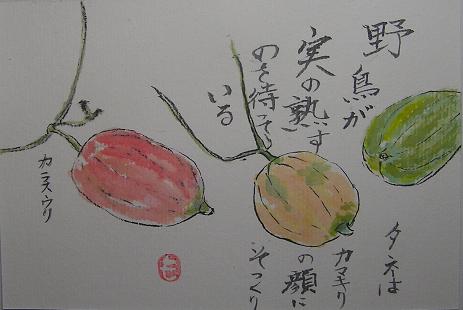 野
鳥が
実の熟す
のを待って
いる
タネは
カマキリ
の顔に
そっくり
カラスウリ